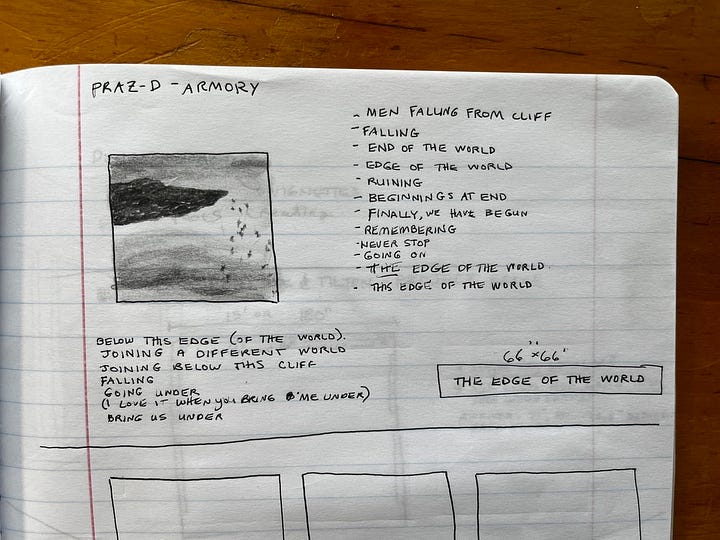 PRAZ-D - ARMORY
- MEN FALLING FROM CLIFF
- FALLING
- END OF THE WORLD
- EDGE OF THE WORLD
- RUINING
- BEGINNINGS AT END
- FINALLY, WE HAVE BEGUN
- REMEMBERING
- NEVER STOP
- GOING ON
- THE EDGE OF THE WORLD.
- THIS EDGE OF THE WORLD
BELOW THIS EDGE (OF THE WORLD).
JOINING A DIFFERENT WORLD
JOINING BELOW THIS CLIFF
FALLING
GOING UNDER
(I LOVE IT WHEN YOU BRING ME UNDER)
BRING US UNDER
66"x66"
THE EDGE OF THE WORLD